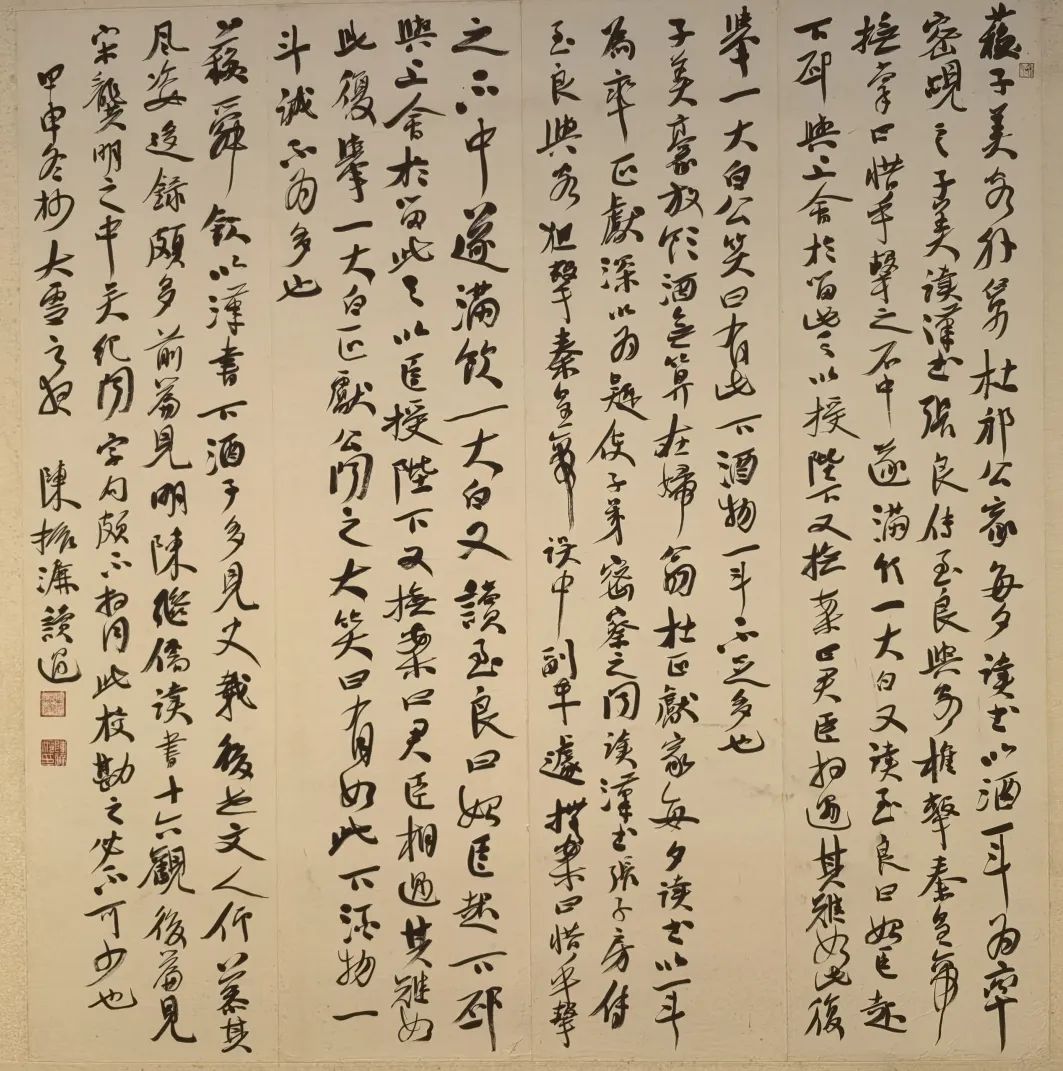 蘇子美客外舅杜祁公家每夕读书以酒一斗为率
密覘之子美读漢书張良传至良與客椎擊秦皇帝
撫掌曰惜乎擊之不中遂滿饮一大白又读至良曰始臣起
下邳與上會於留此天以授陛下又撫案曰君臣相遇其難如此復
舉一大白公笑曰有此下酒物一斗不足多也
子美豪放饮酒無算在婦翁杜正獻家每夕读书以一斗
為率正獻深以为疑使子弟密察之聞读漢书張子房传
至良與客狙擊秦皇帝誤中副車遽撫案曰惜乎擊
之不中遂滿飲一大白又讀至良曰始臣起下邳
與上會於留此天以臣授陛下又撫案曰君臣相遇其難如
此復舉一大白正獻公聞之大笑曰有如此下酒物一
斗誠不为多也
蘇舜欽以漢書下酒子多見史載後世文人仰慕其
風姿迻録頗多前篇見明陳繼儒读書十六觀後篇見
宋龔明之中吴纪聞字句頗不相同此校勘之必不可少也
甲申冬杪大雪之夜 陳振濂讀過